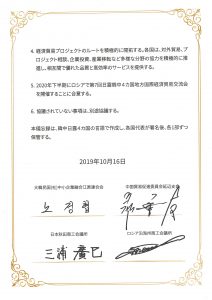 4. 経済貿易プロジェクトのルートを積極的に開拓する。各国は、対外貿易、プ
ロジェクト相談、企業投資、産業移転など多様な分野の協力を積極的に推
進し、相互間で優れた品質と高効率のサービスを提供する。
5. 2020年下半期にロシアで第7回日露韓中4カ国地方国際経済貿易交流会
を開催することに合意する。
6. 協議されていない事項は、別途協議する。
本備忘録は、韓中日露4カ国の言語で作成し、各国代表が署名後、各1部ずつ
保管する。
2019年10月16日
大韓民国(社)中小企業融合江原連合会
中国貿易促進委員会延辺支会
노경집
日本秋田商工会議所
ロシア沿海州商工会議所
三浦廣巳